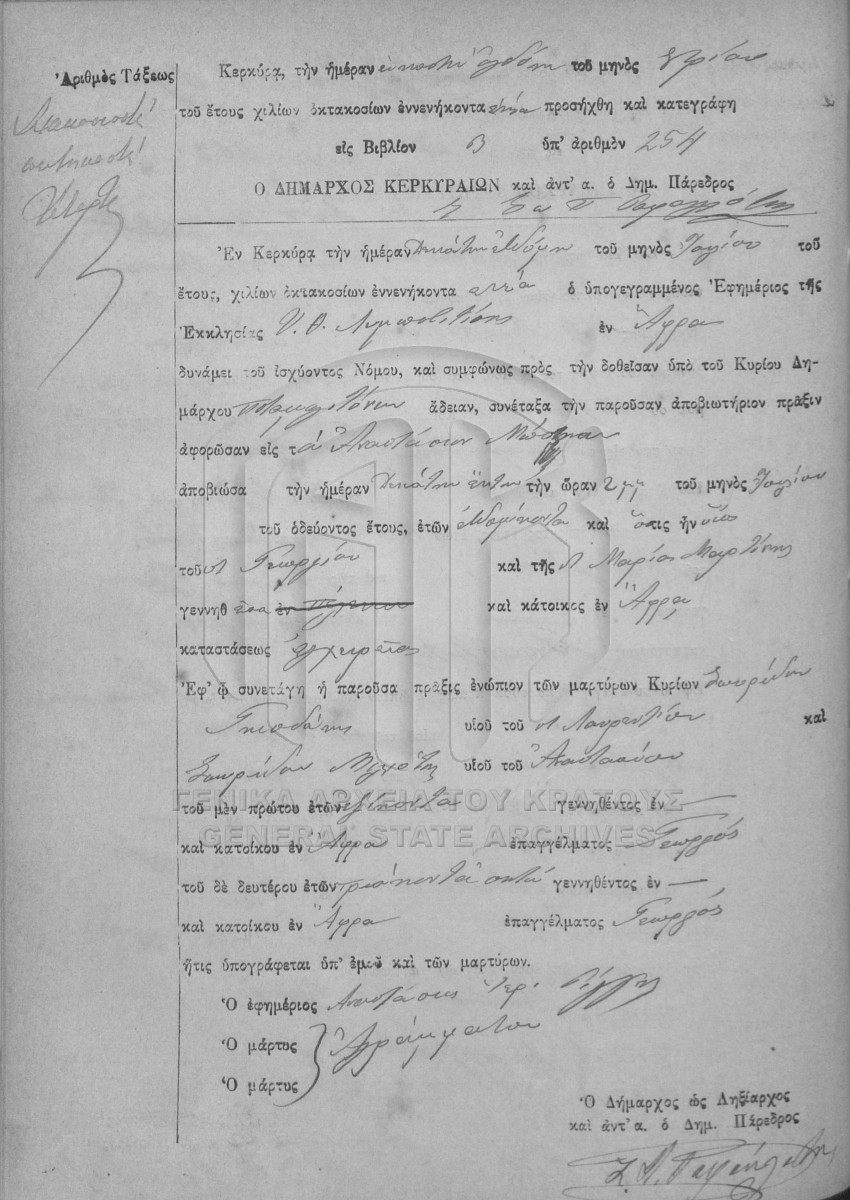 Ἀριθμὸς Τάξεως
Διακοσιοστὴ
πεντηκοστὴ
Τετάρτη
Κερκύρᾳ, τὴν ἡμέραν εἰκοστὴν ἑβδόμην τοῦ μηνὸς
τοῦ ἔτους χιλίων ὀκτακοσίων ἐννενήκοντα ἐννέα προσήχθη καὶ κατεγράφη
εἰς Βιβλίον Β ὑπ' ἀριθμὸν 254
Ο ΔΗΜΑΡΧΟΣ ΚΕΡΚΥΡΑΙΩΝ καὶ ἀντ' α. ὁ Δημ. Πάρεδρος
Ἐν Κερκύρᾳ τὴν ἡμέραν Δεκάτην ἑβδόμην τοῦ μηνὸς Ἰουλίου τοῦ
ἔτους, χιλίων ὀκτακοσίων ἐννενήκοντα ἐννέα ὁ ὑπογεγραμμένος Ἐφημέριος τῆς
Ἐκκλησίας Υ. Θ. ἐν Ἄφρα
δυνάμει τοῦ ἰσχύοντος Νόμου, καὶ συμφώνως πρὸς τὴν δοθεῖσαν ὑπὸ τοῦ Κυρίου Δη-
μάρχου ἄδειαν, συνέταξα τὴν παροῦσαν ἀποβιωτήριον πρᾶξιν
ἀφορῶσαν εἰς τ
ἀποβιώσα τὴν ἡμέραν Δεκάτην ἕκτην τὴν ὥραν 2 μμ τοῦ μηνὸς Ἰουλίου
τοῦ ὁδεύοντος ἔτους, ἐτῶν ἑβδομήκοντα καὶ ὅστις ἦν υἱὸς
τοῦ Γεωργίου καὶ τῆς Μαρίας Μαρτίνης
γεννηθ ἐν καὶ κάτοικος ἐν Ἄφρα
καταστάσεως
Ἐφ' ᾧ συνετάγη ἡ παροῦσα πρᾶξις ἐνώπιον τῶν μαρτύρων Κυρίων Σπυρίδων
υἱοῦ τοῦ Λαυρεντίου καὶ
Σπυρίδων υἱοῦ τοῦ Ἀναστασίου
τοῦ μὲν πρώτου ἐτῶν ἑξήκοντα γεννηθέντος ἐν —
καὶ κατοίκου ἐν Ἄφρα ἐπαγγέλματος Γεωργός
τοῦ δὲ δευτέρου ἐτῶν τριάκοντα ὀκτώ γεννηθέντος ἐν —
καὶ κατοίκου ἐν Ἄφρα ἐπαγγέλματος Γεωργός
ἥτις ὑπογράφεται ὑπ' ἐμοῦ καὶ τῶν μαρτύρων.
Ὁ ἐφημέριος Ἀναστάσιος ἱερ.
Ὁ μάρτυς Ἀγράμματοι
Ὁ μάρτυς
Ὁ Δήμαρχος ὡς Ληξίαρχος
καὶ ἀντ' α. ὁ Δημ. Πάρεδρος
ΓΕΝΙΚΑ ΑΡΧΕΙΑ ΤΟΥ ΚΡΑΤΟΥΣ
GENERAL STATE ARCHIVES